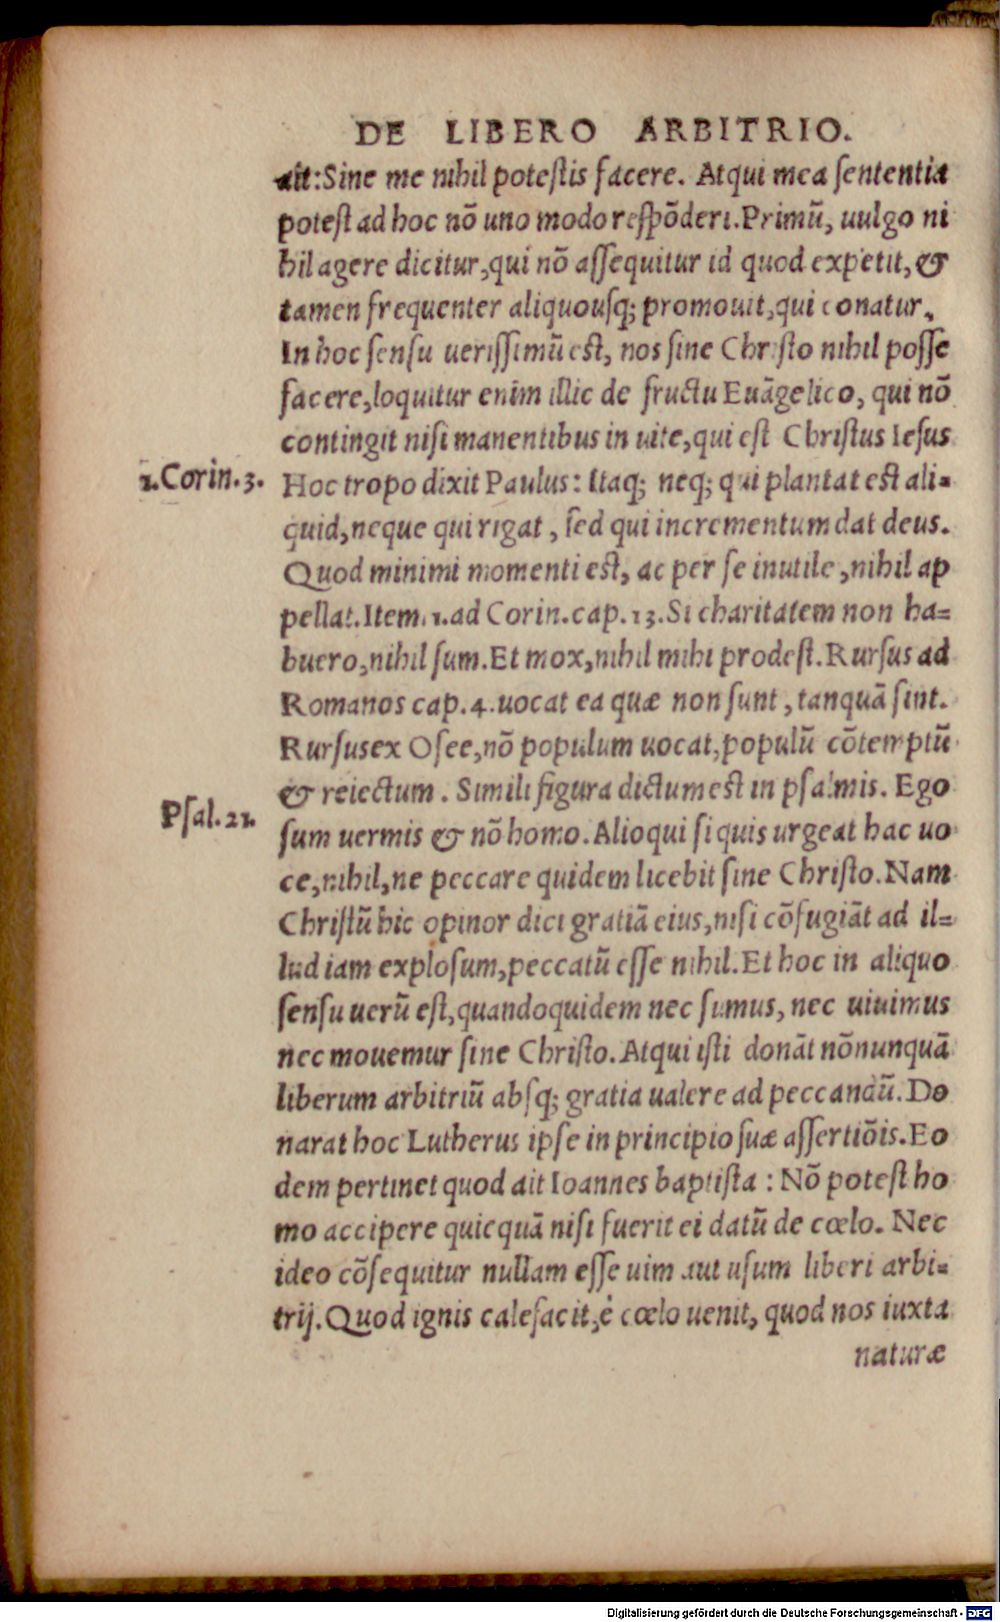 DE LIBERO ARBITRIO.
ait: Sine me nihil potestis facere. Atqui mea sententia
potest ad hoc nõ uno modo respõderi. Primũ, uulgo ni
hil agere dicitur, qui nõ assequitur id quod expetit, &
tamen frequenter aliquousq; promouit, qui conatur.
In hoc sensu uerissimũ est, nos sine Christo nihil posse
facere, loquitur enim illic de fructu Euãgelico, qui nõ
contingit nisi manentibus in uite, qui est Christus Iesus
1. Corin. 3.
Hoc tropo dixit Paulus: Itaq; neq; qui plantat est ali=
quid, neque qui rigat, sed qui incrementum dat deus.
Quod minimi momenti est, ac per se inutile, nihil ap
pellat. Item. 1. ad Corin. cap. 13. Si charitatem non ha=
buero, nihil sum. Et mox, nihil mihi prodest. Rursus ad
Romanos cap. 4. uocat ea quæ non sunt, tanquã sint.
Rursus ex Osee, nõ populum uocat, populũ cõtemptũ
& reiectum. Simili figura dictum est in psalmis. Ego
Psal. 21.
sum uermis & nõ homo. Alioqui si quis urgeat hac uo
ce, nihil, ne peccare quidem licebit sine Christo. Nam
Christũ hic opinor dici gratiã eius, nisi cõfugiãt ad il=
lud iam explosum, peccatũ esse nihil. Et hoc in aliquo
sensu uerũ est, quandoquidem nec sumus, nec uiuimus
nec mouemur sine Christo. Atqui isti donãt nõnunquã
liberum arbitriũ absq; gratia ualere ad peccandũ. Do
narat hoc Lutherus ipse in principio suæ assertiõis. Eo
dem pertinet quod ait Ioannes baptista: Nõ potest ho
mo accipere quicquã nisi fuerit ei datũ de cœlo. Nec
ideo cõsequitur nullam esse uim aut usum liberi arbi=
trij. Quod ignis calefacit, è cœlo uenit, quod nos iuxta
naturæ
Digitalisierung gefördert durch die Deutsche Forschungsgemeinschaft - DFG